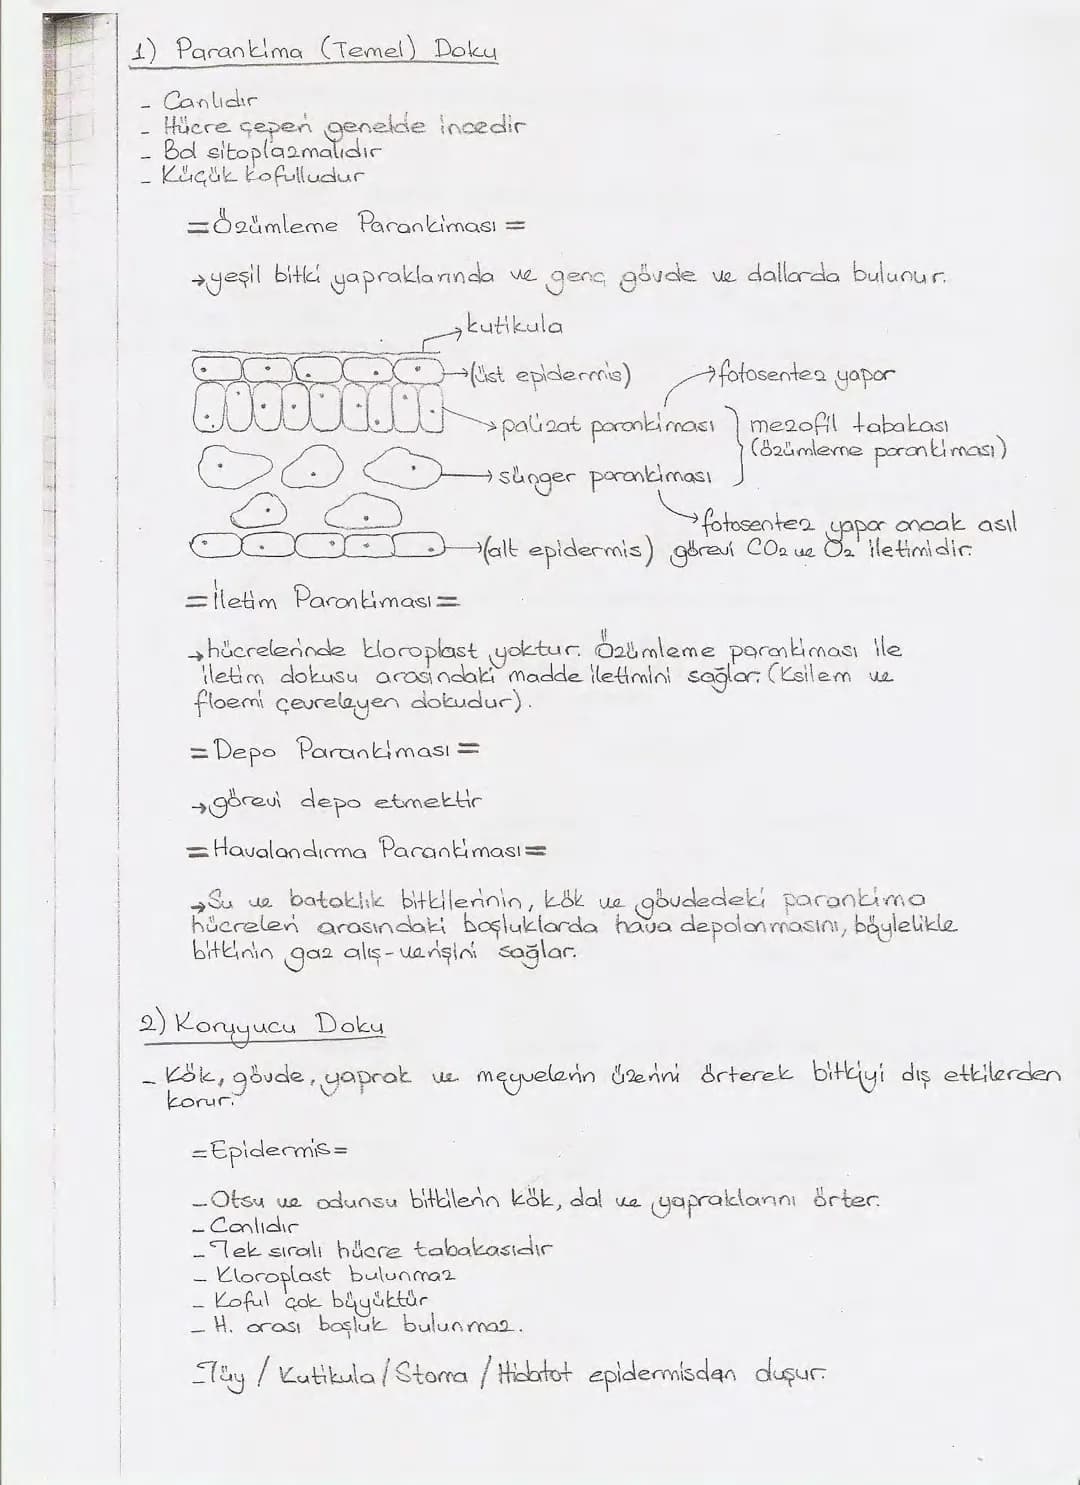 1) Parankima (Temel) Doku
- Canlıdır
- Hücre çeperi genelde incedir
- Bol sitoplazmalıdır
- Küçük kofulludur
=Özümleme Parankiması=
→yeşil bitki yapraklarında ve genç gövde ve dallarda bulunur.
→kutikula
→(üst epidermis)
→fotosentez yapar
→palizat parankiması
mezofil tabakası
(özümleme parankiması)
→sünger parankiması
→fotosentez yapar ancak asıl
görevi CO2 ve O2 iletimidir.
→(alt epidermis)
=İletim Parankiması=
→hücrelerinde kloroplast yoktur. Özümleme parankiması ile
iletim dokusu arasındaki madde iletimini sağlar. (Ksilem ve
floemi çevreleyen dokudur).
=Depo Parankiması=
→görevi depo etmektir
=Havalandırma Parankiması=
→Su ve bataklık bitkilerinin, kök ve gövdedeki parankima
hücreleri arasındaki boşluklarda hava depolanmasını, böylelikle
bitkinin gaz alış-verişini sağlar.
2) Koruyucu Doku
- Kök, gövde, yaprak ve meyvelerin üzerini örterek bitkiyi dış etkilerden
korur.
=Epidermis=
-Otsu ve odunsu bitkilerin kök, dal ve yapraklarını örter.
-Canlıdır
-Tek sıralı hücre tabakasıdır
- Kloroplast bulunmaz
- Koful çok büyüktür
- H. arası boşluk bulunmaz.
-Tüy / Kutikula / Stoma / Hidatot epidermisdan duşur.